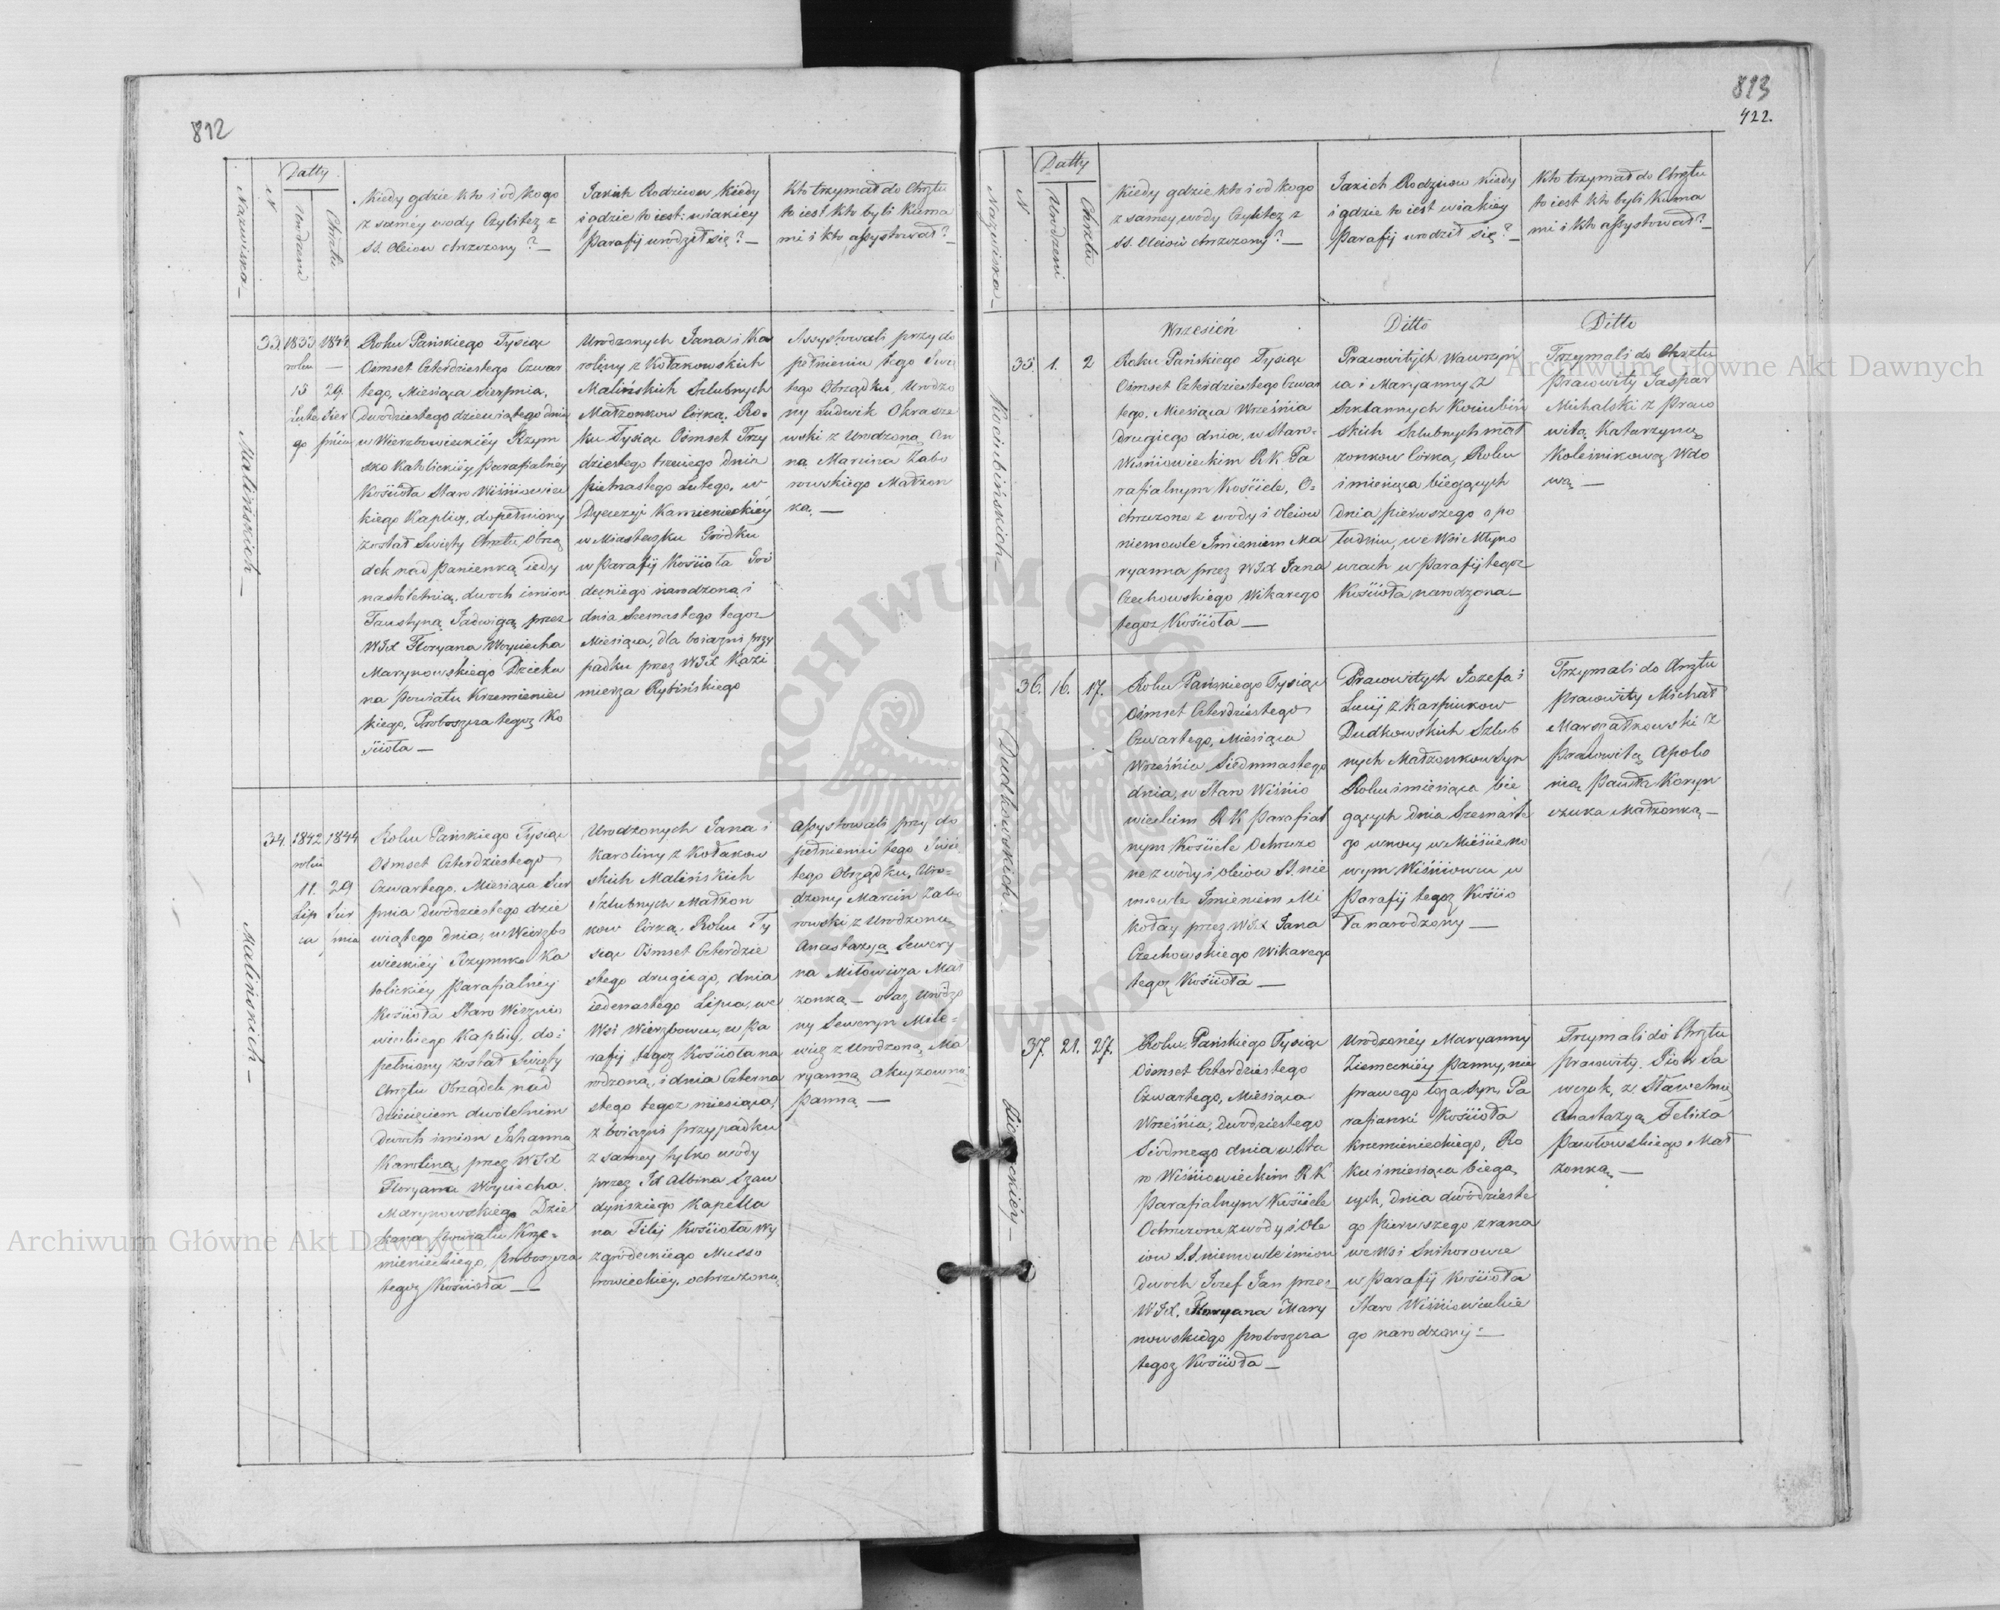 812
Datty
Nazwiska
N
Urodzeni
Chrztu
Kiedy gdzie kto i od kogo
z saméy wody Czylitez z
SS. Oleiow chrzczony? —
Jakich Rodziców Kiedy
i gdzie to iest: w iakiéy
Parafij urodził się? —
Kto trzymał do Chrztu
to iest kto byli Kuma
mi i kto assystował? —
Malińskich —
33. 1833 1844
roku —
15 29
Lute Sier
go pnia
Roku Pańskiego Tysiąc
Ośmset Czterdziestego Czwar
tego, Miesiąca Sierpnia,
dwudziestego dziewiątego dnia
w Wierzbowieckiéy Rzym
sko Katolickiéy Parafialnéy
Kościoła Staro Wiśniowiec
kiego Kaplicy, dopełniony
został Swięty Chrztu Obrzą
dek nad Panienką iedy
nastoletnią, dwoch imion
Faustyną Jadwigą przez
WJX Floryana Woyciecha
Marynowskiego Dzieka
na Powiatu Krzemieniec
kiego, Proboszcza tegoz Ko
ścioła —
Urodzonych Jana i Ka
roliny z Kołakowskich
Malińskich Szlubnych
Małżonkow Córka, Ro=
ku Tysiąc Ośmset Trzy
dziestego trzeciego dnia
piętnastego Lutego, w
Dyecezyi Kamienieckiéy
w Miasteczku Grodku
w Parafij Kościoła Gró
deckiego narodzona i
dnia szesnastego tegoz
Miesiąca, dla boiazni przy
padku przez WJX Kazi
mierza Rybińskiego
Assystowali przy do
pełnieniu tego Swię
tego Obrządku, Urodzo
ny Ludwik Okrasze
wski z Urodzoną An
ną Marcina Zabo
rowskiego Małzon
ką. —
Malińskich —
34. 1842 1844
roku
11. 29
Lip Sier
ca pnia
Roku Pańskiego Tysiąc
Ośmset Czterdziestego
Czwartego, Miesiąca Sier
pnia dwódziestego dzie
wiątego dnia, w Wierzbo
wieckiéy Rzymsko Ka
tolickiéy Parafialnéy
Kościoła Staro Wisznio
wieckiego Kaplicy, do=
pełniony został Swięty
Chrztu Obrządek nad
Dziecięciem dwóletnim
dwoch imion Johanna
Karolina, przez WJX
Floryana Woyciecha
Marynowskiego Dzie
kana Powiatu Krze=
mienieckiego, Proboszcza
tegoz Kościoła —
Urodzonych Jana i
Karoliny z Kołakow
skich Malińskich
Szlubnych Małżon
kow Córka, Roku Ty
siąc Ośmset Czterdzie
stego drugiego, dnia
iedenastego Lipca, we
Wsi Wierzbowcu, w Pa
rafij tegoz Kościoła na
rodzona, i dnia Czterna
stego tegoz miesiąca,
z boiazni przypadku
z saméy tylko wody
przez JX Albina Szaw
dyńskiego Kapella
na Filij Kościoła Wy
zgródeckiego Musso
rowieckiéy, ochrzczona.
Assystowali przy do
pełnieniu tego Swię
tego Obrządku, Uro=
dzony Marcin Zabo
rowski z Urodzoną
Anastazyą Sewery
na Miłowicza Mał
zonką — oraz Urodzo
ny Seweryn Mile=
wicz z Urodzoną Ma
ryanną Okuszowną
Panną —
813
422.
Datty
Nazwiska —
N
Urodzeni
Chrztu
Kiedy gdzie kto i od kogo
z saméy wody Czylitez z
SS. Oleiow chrzczony? —
Jakich Rodziców Kiedy
i gdzie to iest w iakiéy
Parafij urodził się? —
Kto trzymał do Chrztu
to iest kto byli Kuma
mi i kto assystował? —
Wrzesień
Ditto
Ditto
Koziubińskich —
35. 1. 2
Roku Pańskiego Tysiąc
Ośmset Czterdziestego Czwar
tego, Miesiąca Września
drugiego dnia, w Staro=
Wiśniowieckim R. K. Pa
rafialnym Kościele, O=
chrzczone z wody i oleiow
niemowle Imieniem Ma
ryanna przez WJX Jana
Czechowskiego Wikarego
tegoz Kościoła —
Pracowitych Wawrzyń
ca i Maryanny z
Szklannych Koziubiń
skich Szlubnych mał
zonkow Córka, Roku
i miesiąca bieżących
dnia pierwszego o po
łudniu, we Wsi Młyno
wcach w Parafij tegoz
Kościoła narodzona —
Trzymali do Chrztu
Pracowity Gaspar
Michalski z Praco
witą Katarzyną
Koleśnikową Wdo
wą —
Dudkowskich.
36. 16. 17.
Roku Pańskiego Tysiąc
Ośmset Czterdziestego
Czwartego, Miesiąca
Września Siedmnastego
dnia, w Staro Wiśnio
wieckim R K Parafial
nym Kościele Ochrzczo
ne z wody i oleiow SS. nie
mowle Imieniem Mi
kołay przez WJX Jana
Czechowskiego Wikarego
tegoz Kościoła —
Pracowitych Jozefa i
Lucij z Karpiukow
Dudkowskich Szlub
nych Małzonkow Syn
Roku i miesiąca bie
żących dnia Szesnaste
go w nocy w Mieście no
wym Wiśniowcu w
Parafij tegoz Kościo
ła narodzony —
Trzymali do Chrztu
Pracowity Michał
Marszałkowski z
Pracowitą Apolo
nią Pawła Koryn
czuka Małzonką —
Ziemeckiéy —
37. 21. 27.
Roku Pańskiego Tysiąc
Ośmset Czterdziestego
Czwartego, Miesiąca
Września, dwódziestego
Siódmego dnia w Sta
ro Wiśniowieckim R K
Parafialnym Kościele
Ochrzczone z wody i Ole
iow S.S. niemowle imion
dwoch Jozef Jan przez
WJX. Floryana Mary
nowskiego Proboszcza
tegoz Kościoła —
Urodzonéy Maryanny
Ziemeckiéy Panny, nie
prawego łoza Syn, Pa
rafianki Kościoła
Krzemienieckiego, Ro
ku i miesiąca bieżą
cych, dnia dwódzieste
go pierwszego z rana
we Wsi Snihorowce
w Parafij Kościoła
Staro Wiśniowieckie
go narodzony. —
Trzymali do Chrztu
Pracowity Piotr Sa
wczuk z Sławetną
Anastazyą Felixa
Pawłowskiego Mał
zonką —
Archiwum Główne Akt Dawnych
Archiwum Główne Akt Dawnych